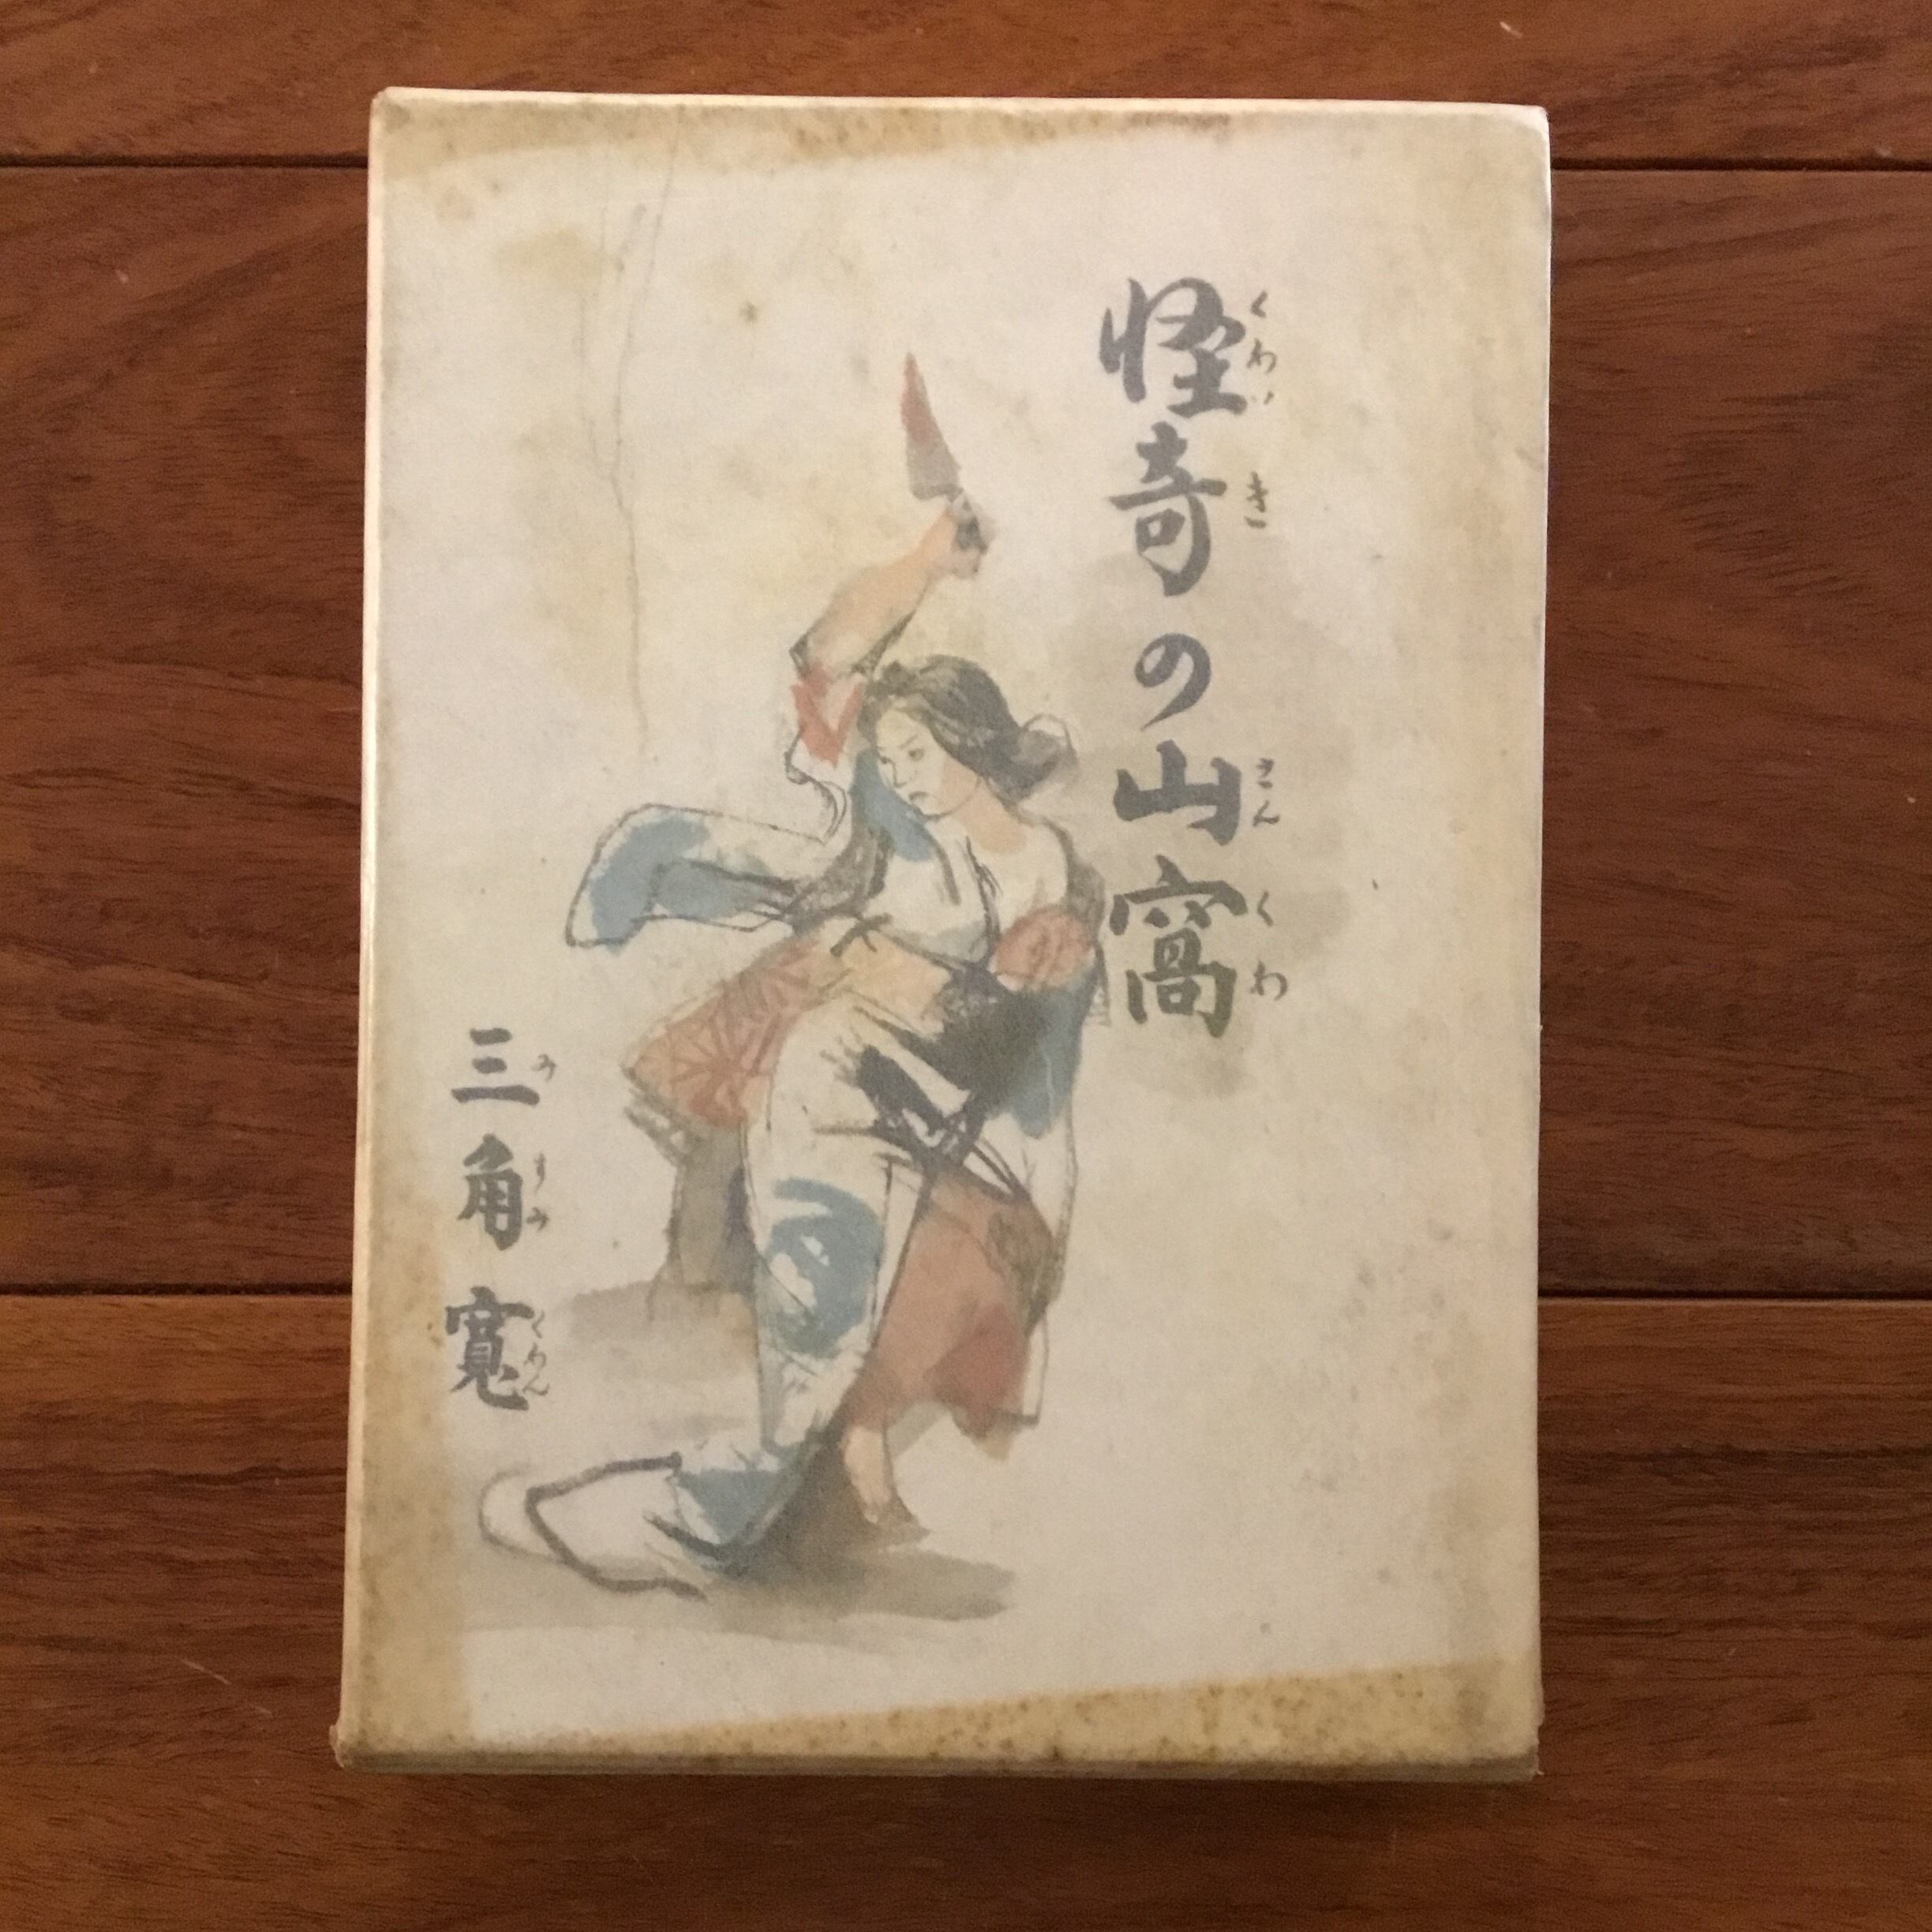 怪奇の山窩
くわいきさんくわ
三角寛
みすみくわん